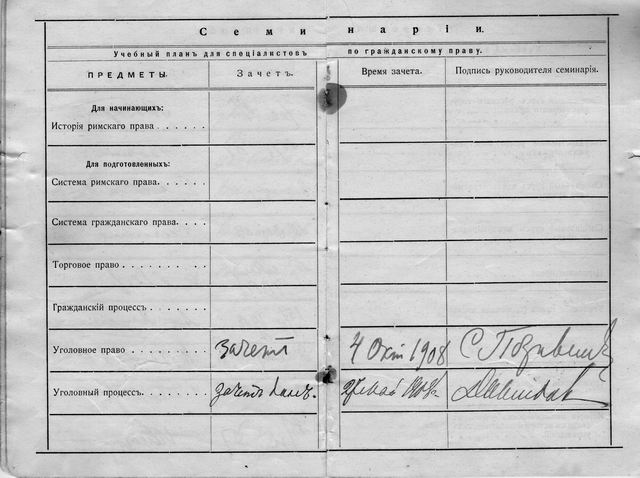 Семинаріи.
Учебный планъ для спеціалистовъ по гражданскому праву.
ПРЕДМЕТЫ. Зачетъ. Время зачета. Подпись руководителя семинарія.
Для начинающихъ:
Исторія римскаго права . . . . . .
Для подготовленныхъ:
Система римскаго права. . . . . .
Система гражданскаго права. . . .
Торговое право . . . . . . . . . .
Гражданскій процессъ . . . . . . .
Уголовное право . . . . . . . . . зачетъ 4 Окт 1908 С.
Уголовный процессъ. . . . . . . . зачетъ